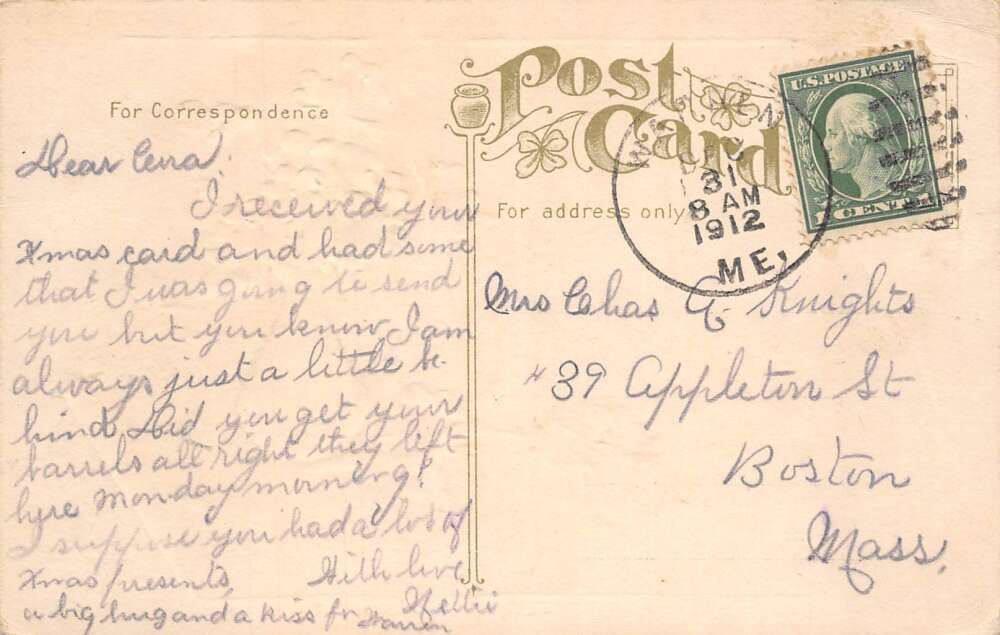 Post
Card
U.S. POSTAGE
For Correspondence
For address only
31
8 AM
1912
ME.
Dear
I received your
Xmas card and had some
that I was going to send
you but you know I am
always just a little be-
hind Did you get your
barrels all right they left
here Monday morning?
I suppose you had a lot of
Xmas presents. With love
Nettie
a big hug and a kiss for Warren
Mrs Chas E Knights
#39 Appleton St
Boston
Mass.